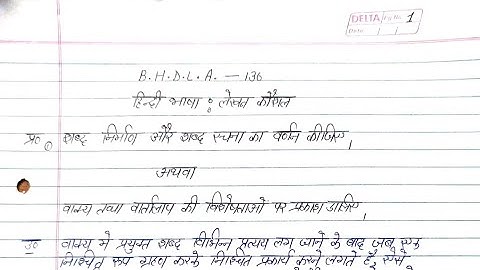 DELTA Pg No. 1
Date
B.H.D.L.A. - 136
हिन्दी भाषा : लेखन कौशल
प्र० शब्द निर्माण और शब्द रचना का वर्णन कीजिए।
अथवा
वाक्य तथा वार्तालाप की विशेषताओं पर प्रकाश डालिए।
उ० वाक्य में प्रयुक्त शब्द विभिन्न प्रत्यय लग जाने के बाद जब एक
निश्चित रूप ग्रहण करके निश्चित प्रकार्य करने लगते है, उसे